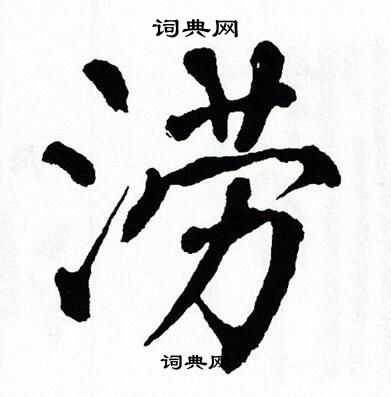 词典网
涝
词典网